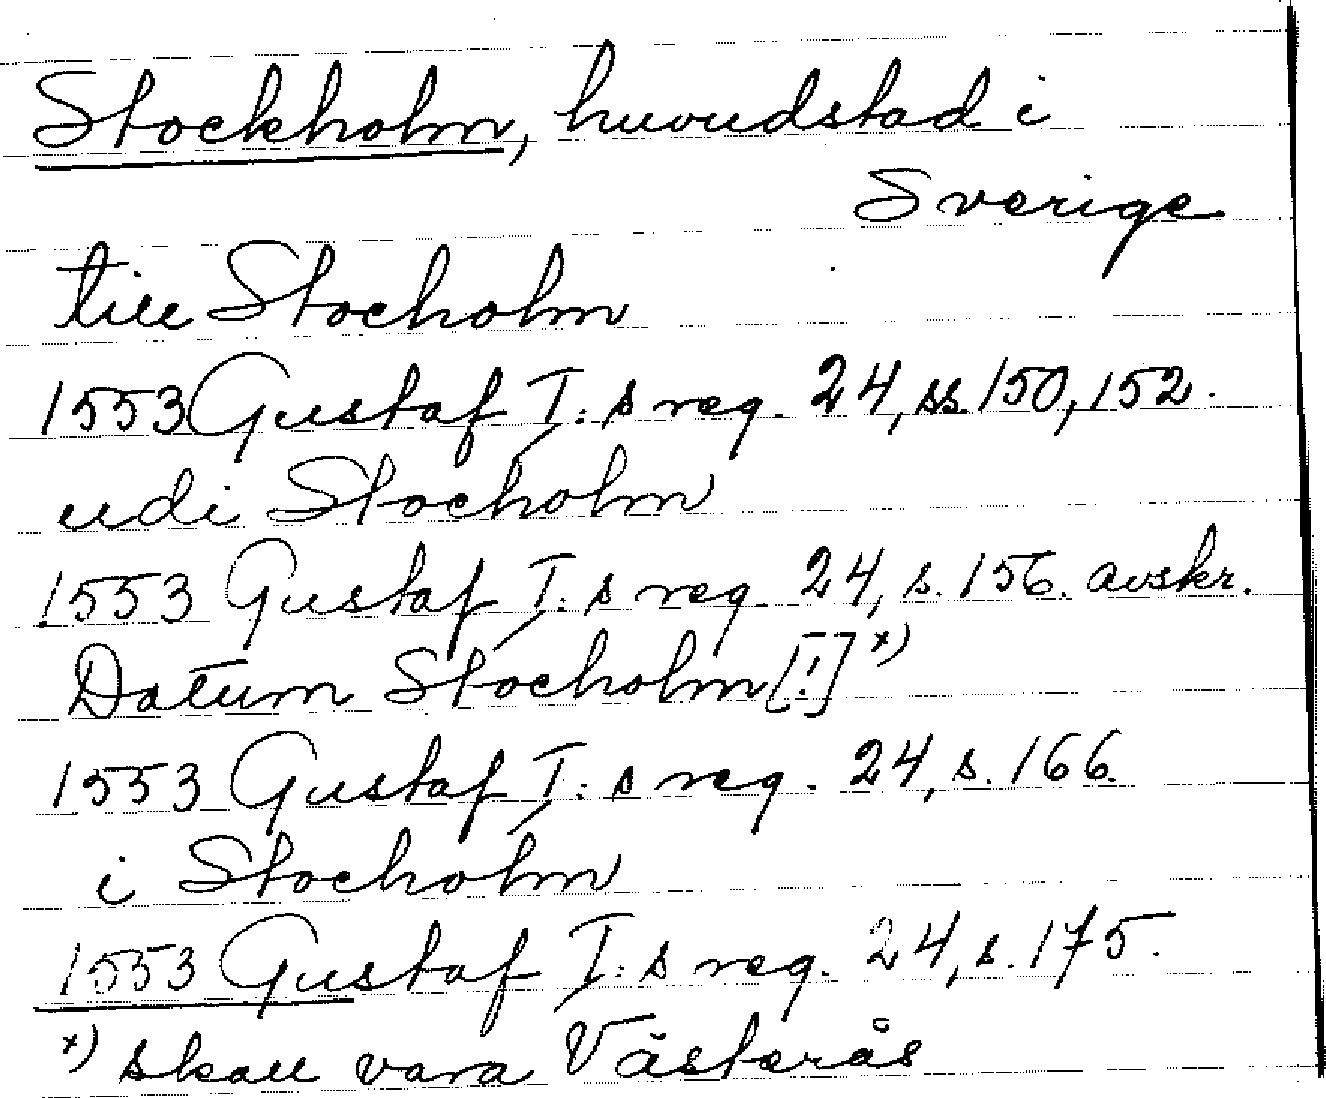 Stockholm, huvudstad i
Sverige
till Stocholm
1553 Gustaf I:s reg. 24, ss. 150, 152.
udi Stocholm
1553 Gustaf I:s reg. 24, s. 156. avskr.
Datum Stocholm [!] x)
1553 Gustaf I:s reg. 24, s. 166.
i Stocholm
1553 Gustaf I:s reg. 24, s. 175.
x) skall vara Västerås